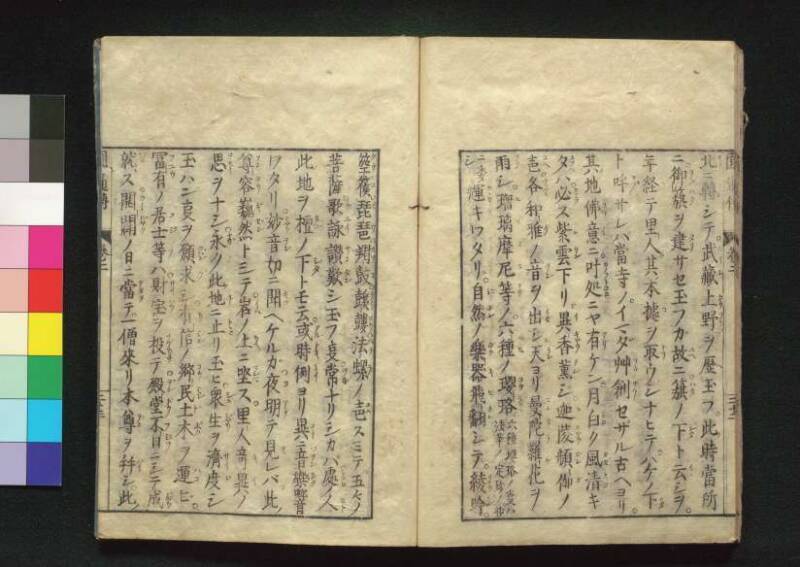 北ニ轉シテ武藏上野ヲ歴玉フ此時當所
ニ御簱ヲ建サセ玉フカ故ニ簱ノ下ト云シヲ
年経テ里人其本據ヲ取ウシナヒテハケノ下
ト呼サレハ當寺ノイマダ艸創セザル古ヘヨリ
其地佛意ニ叶処ニヤ有ケン月白ク風清キ
タハ必ス紫雲下リ異香薫シ迦蘭頻伽ノ
色各和雅ノ音ヲ出シ天ヨリ曼陀羅花ヲ
雨シ瑠璃摩尼等ノ六種ノ瓔珞
シ輝キワタリ自然ノ樂器飛翻シテ綾吟
箜篌琵琶鐃鼓法螺ノ声スミテ五々ノ
菩薩歌詠讃歎シ玉フ㕝常ナリシカバ處ノ人
此地ヲ檀ノ下トモ云或時例ヨリ異ニ音樂響
ワタリ妙音如ニ聞ヘケルカ夜明テ見レバ此
尊容巍然トシテ岩ノ上ニ坐ス里人奇異ノ
思ヲナシ永ク此地ニ止リ玉ヒ衆生ヲ濟度シ
玉ハン㕝ヲ願求シ信ノ郷民土木ヲ運ビ
冨有ノ居士等ハ財宝ヲ投テ殿堂不日ニシテ成
就ス開闢ノ日ニ當テ一僧來リ本尊ヲ拜シ此